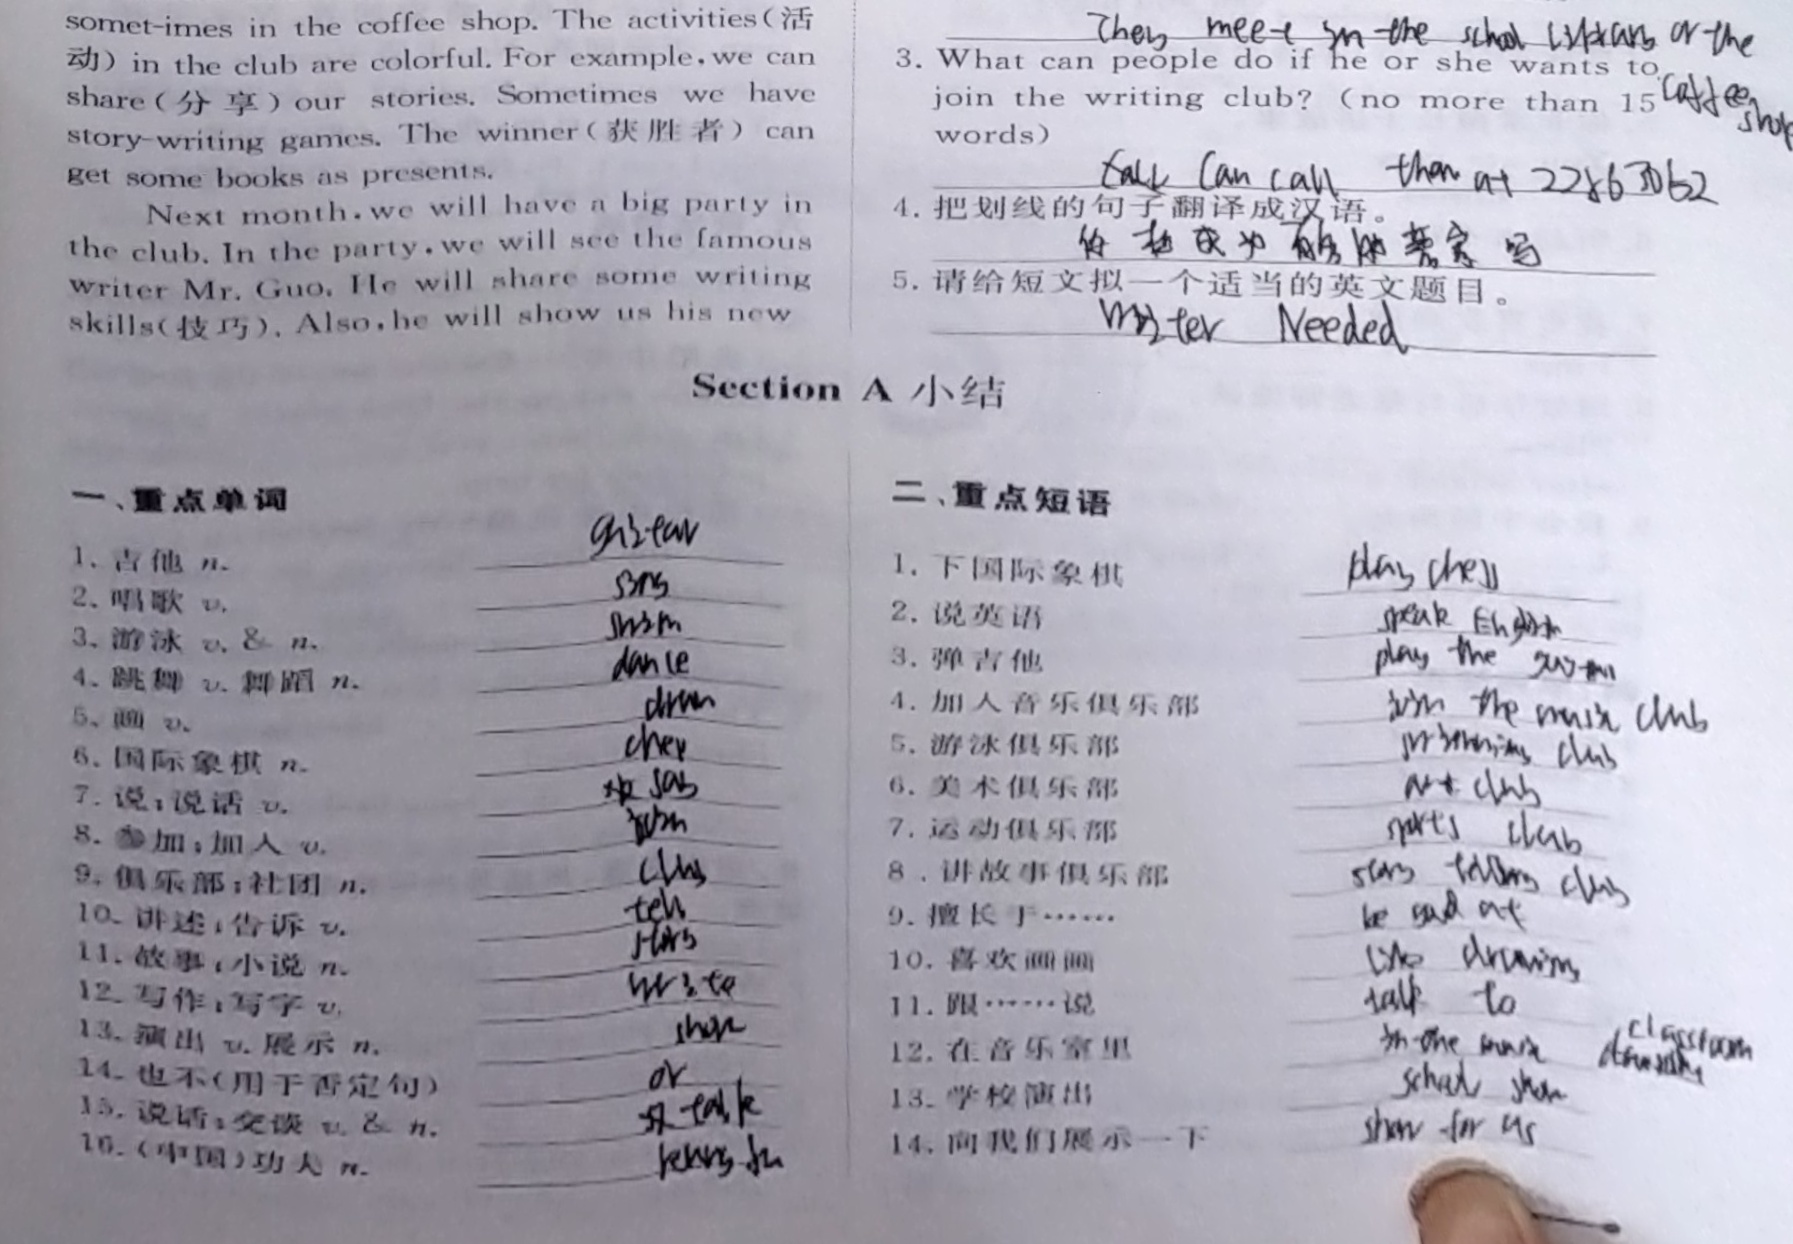 somet-imes in the coffee shop. The activities(活
动) in the club are colorful. For example, we can
share(分享) our stories. Sometimes we have
story-writing games. The winner(获胜者) can
get some books as presents.
Next month, we will have a big party in
the club. In the party, we will see the famous
writer Mr. Guo. He will share some writing
skills(技巧). Also, he will show us his new
They meet in the school library or the
coffee shop
3. What can people do if he or she wants to
join the writing club? (no more than 15
words)
can call them at 22863062
4. 把划线的句子翻译成汉语。
5. 请给短文拟一个适当的英文题目。
Writer Needed
Section A 小结
一、重点单词
1. 吉他 n. guitar
2. 唱歌 v. sing
3. 游泳 v. & n. swim
4. 跳舞 v. 舞蹈 n. dance
5. 画 v. draw
6. 国际象棋 n. chess
7. 说;说话 v. say
8. 参加;加入 v. join
9. 俱乐部;社团 n. club
10. 讲述;告诉 v. tell
11. 故事;小说 n. story
12. 写作;写字 v. write
13. 演出 v. 展示 n. show
14. 也不(用于否定句) or
15. 说话;交谈 v. & n. talk
16. (中国)功夫 n.
二、重点短语
1. 下国际象棋 play chess
2. 说英语 speak English
3. 弹吉他 play the guitar
4. 加入音乐俱乐部 join the music club
5. 游泳俱乐部 swimming club
6. 美术俱乐部 art club
7. 运动俱乐部 sports club
8. 讲故事俱乐部 story telling club
9. 擅长于…… be good at
10. 喜欢画画 like drawing
11. 跟……说 talk to
12. 在音乐室里 in the music classroom
13. 学校演出 school show
14. 向我们展示一下 show for us